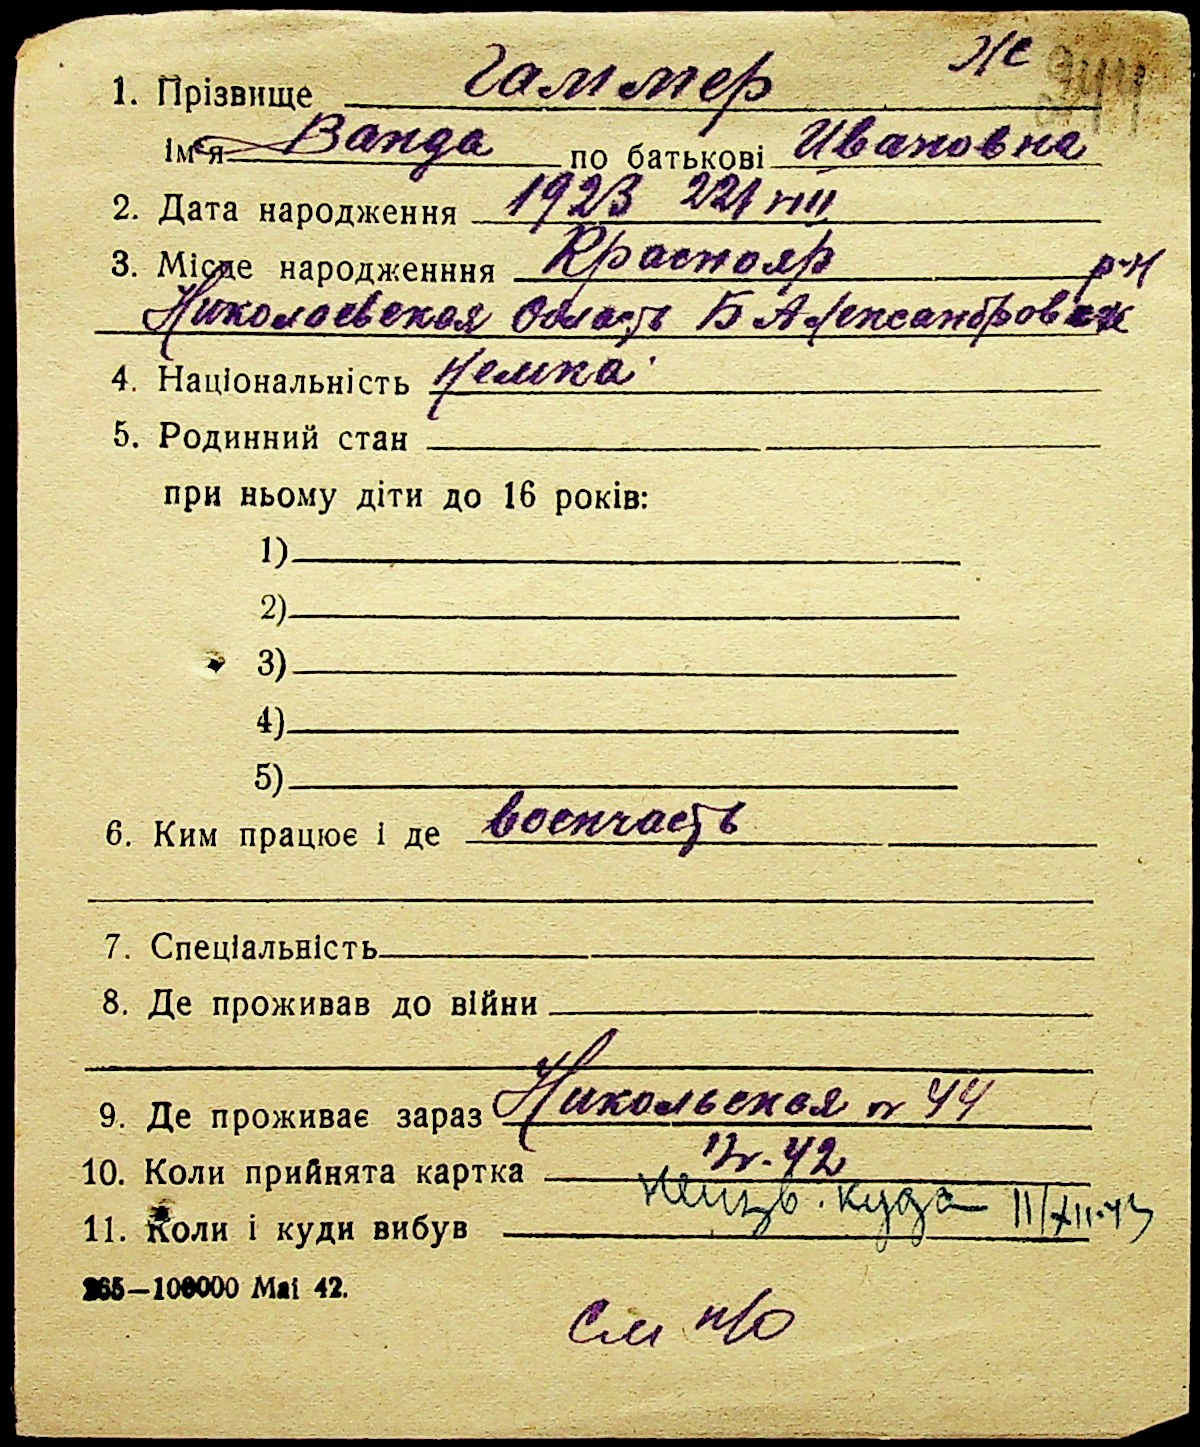 Же
1. Прізвище Гаммер
ім'я Ванда по батькові Ивановна
2. Дата народження 1923 22/VIII
3. Місце народженння Краснояр
Николаевская область Б Александровск р-н
4. Національність Немка
5. Родинний стан
при ньому діти до 16 років:
1)
2)
3)
4)
5)
6. Ким працює і де воєнчасть
7. Спеціальність
8. Де проживав до війни
9. Де проживає зараз Никольская 44
10. Коли прийнята картка 42
11. Коли і куди вибув неизв. куда 11/XII-43
265—100000 Маі 42.
См н/о